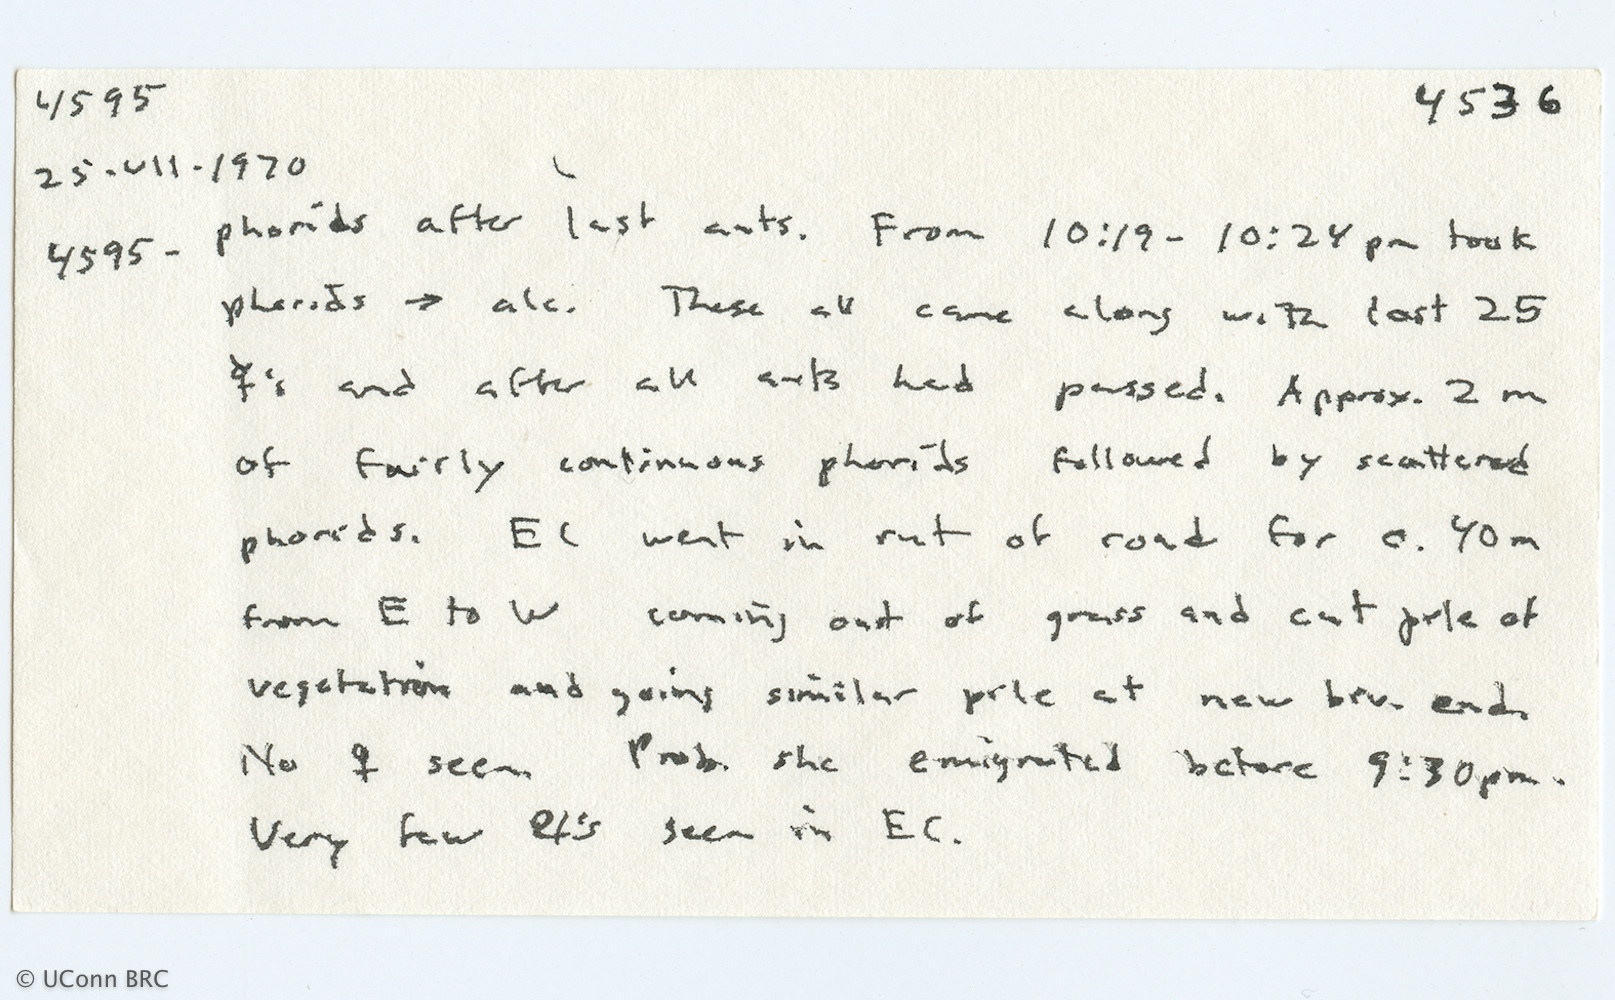 4595 4536
25-VII-1970
4595- phorids after last ants. From 10:19-10:24pm took
phorids → alc. These all came along with last 25
☿'s and after all ants had passed. Approx. 2 m
of fairly continuous phorids followed by scattered
phorids. EC went in rut of road for c. 40m
from E to W coming out of grass and cut pile of
vegetation and going similar pile at new biv. end.
No ♀ seen. Prob. she emigrated before 9:30pm.
Very few seen in EC.
© UConn BRC